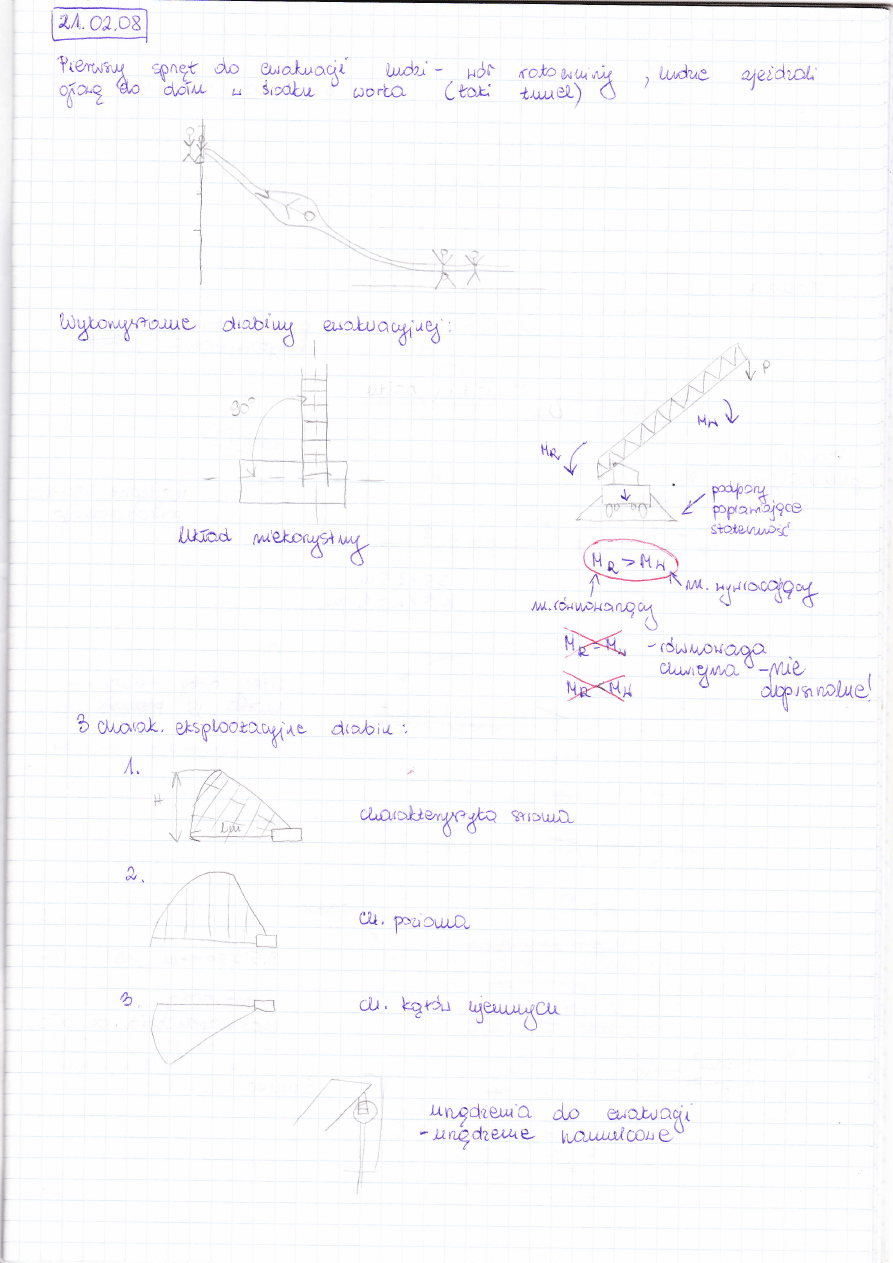 21.02.08
Pierwszy sprzęt do ewakuacji ludzi - wór ratowniczy, ludzie zjeżdzali
głową do dołu w środku worka (taki tunel)
Wykorzystanie drabiny ewakuacyjnej:
90°
P
Mw
MR
podpory
poprawiające
stateczność
Układ niekorzystny
MR > Mw
m. wywracający
m. równoważący
MR = Mw - równowaga
chwiejna - nie
dopuszczalne!
MR < Mw
3 charak. eksploatacyjne drabin:
1.
H
Lm
charakterystyka stroma
2.
ch. pozioma
3.
ch. kątów ujemnych
urządzenia do ewakuagi
- urządzenie hamulcowe